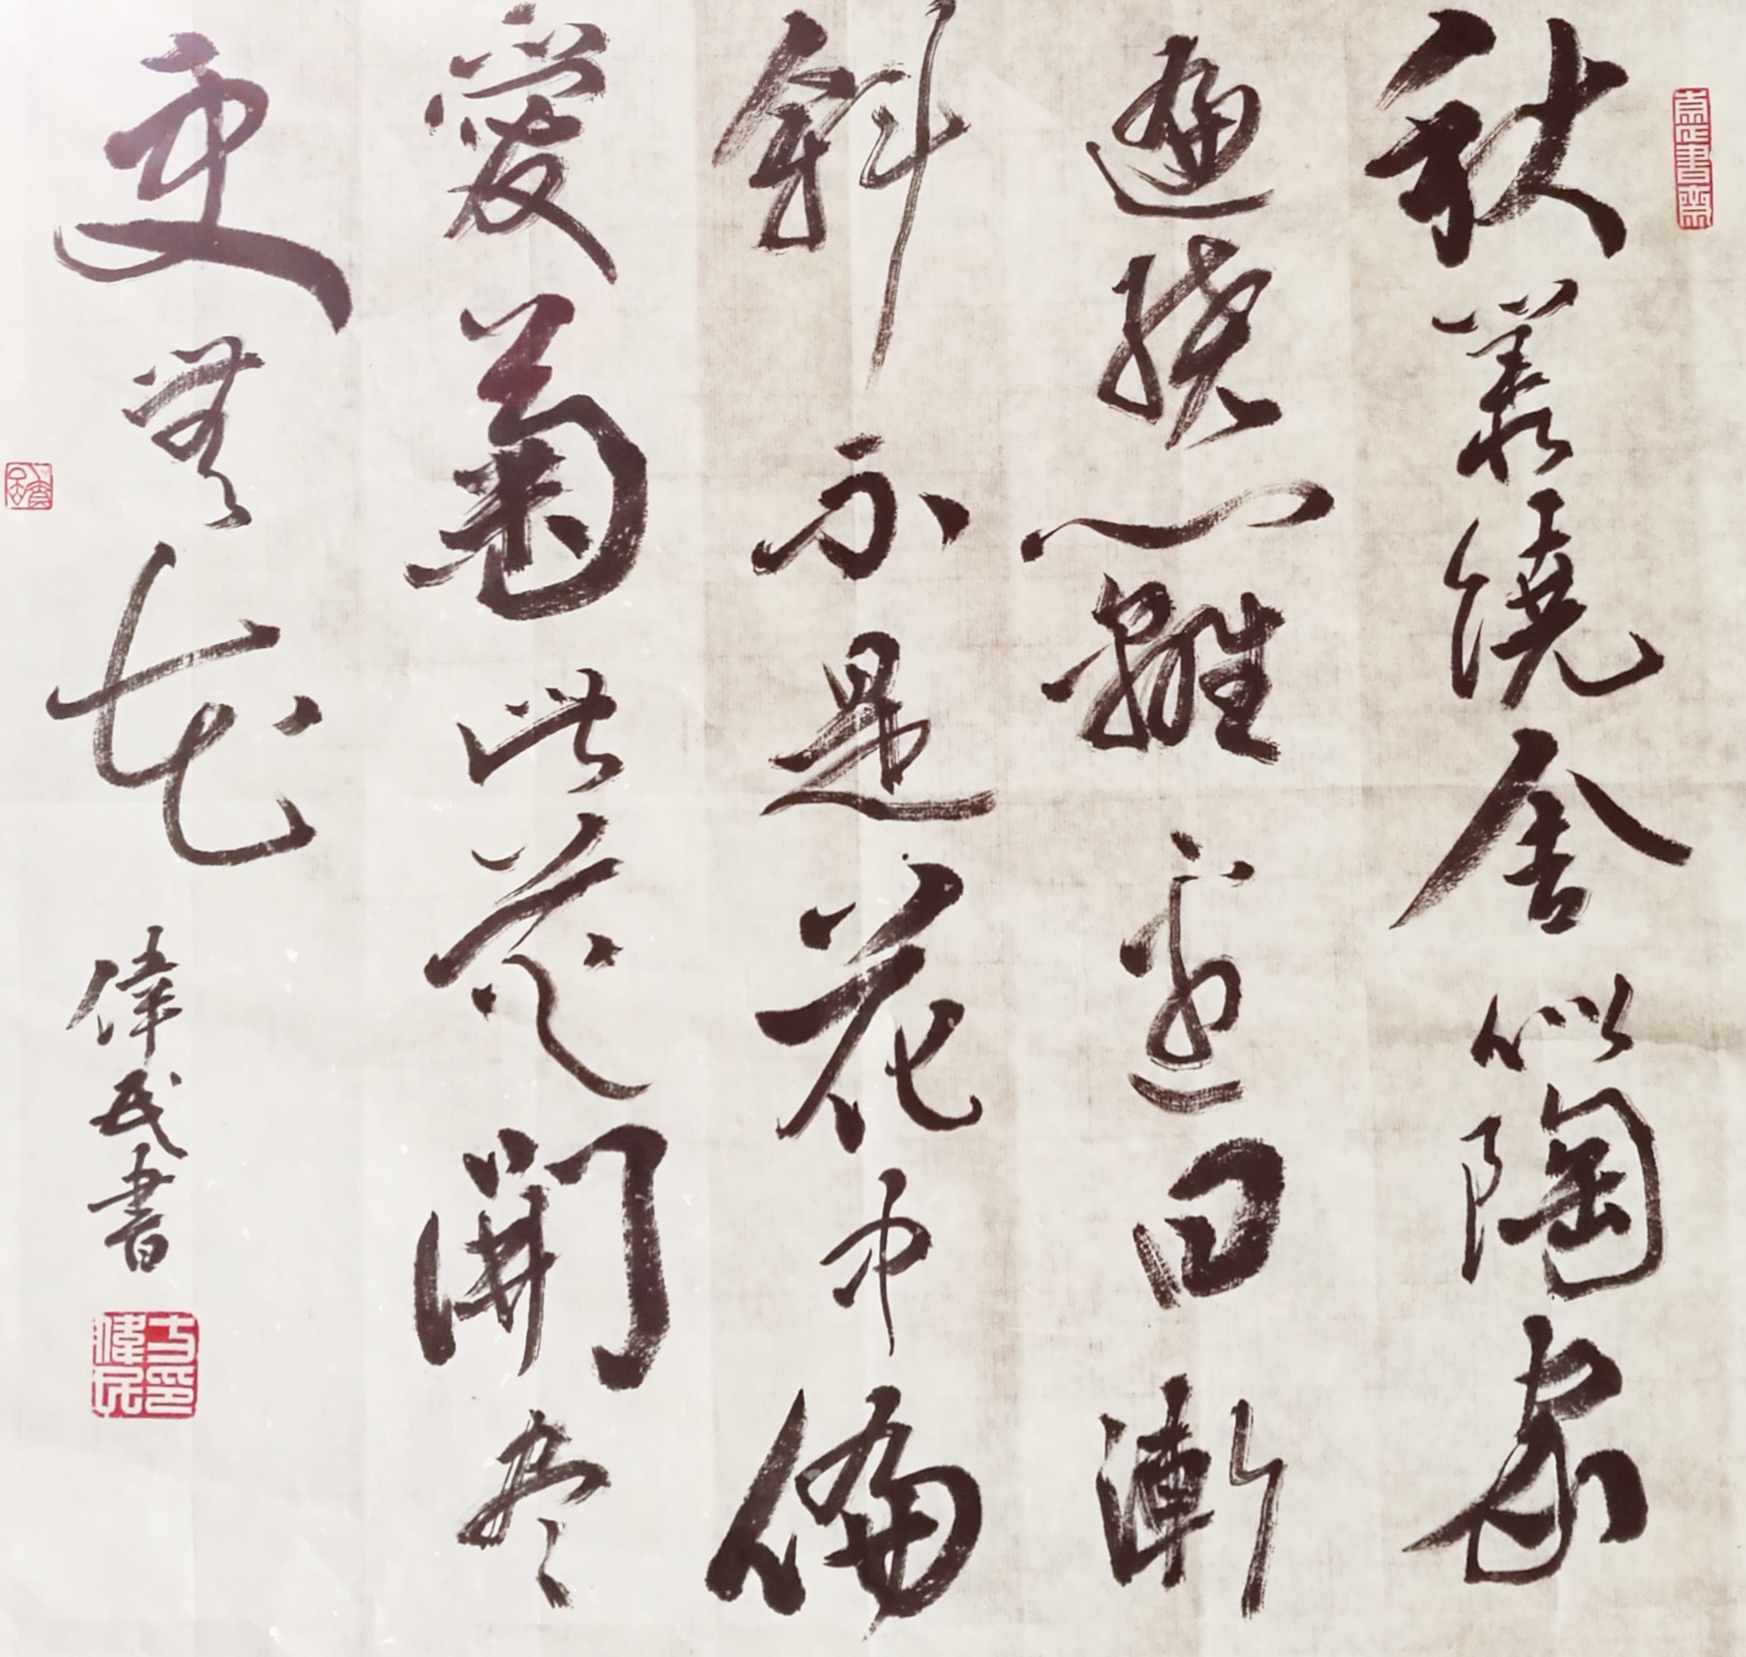 秋叢繞舍似陶家
遍繞籬邊日漸
斜不是花中偏
愛菊此花開盡
更無花
偉民書
方印偉民